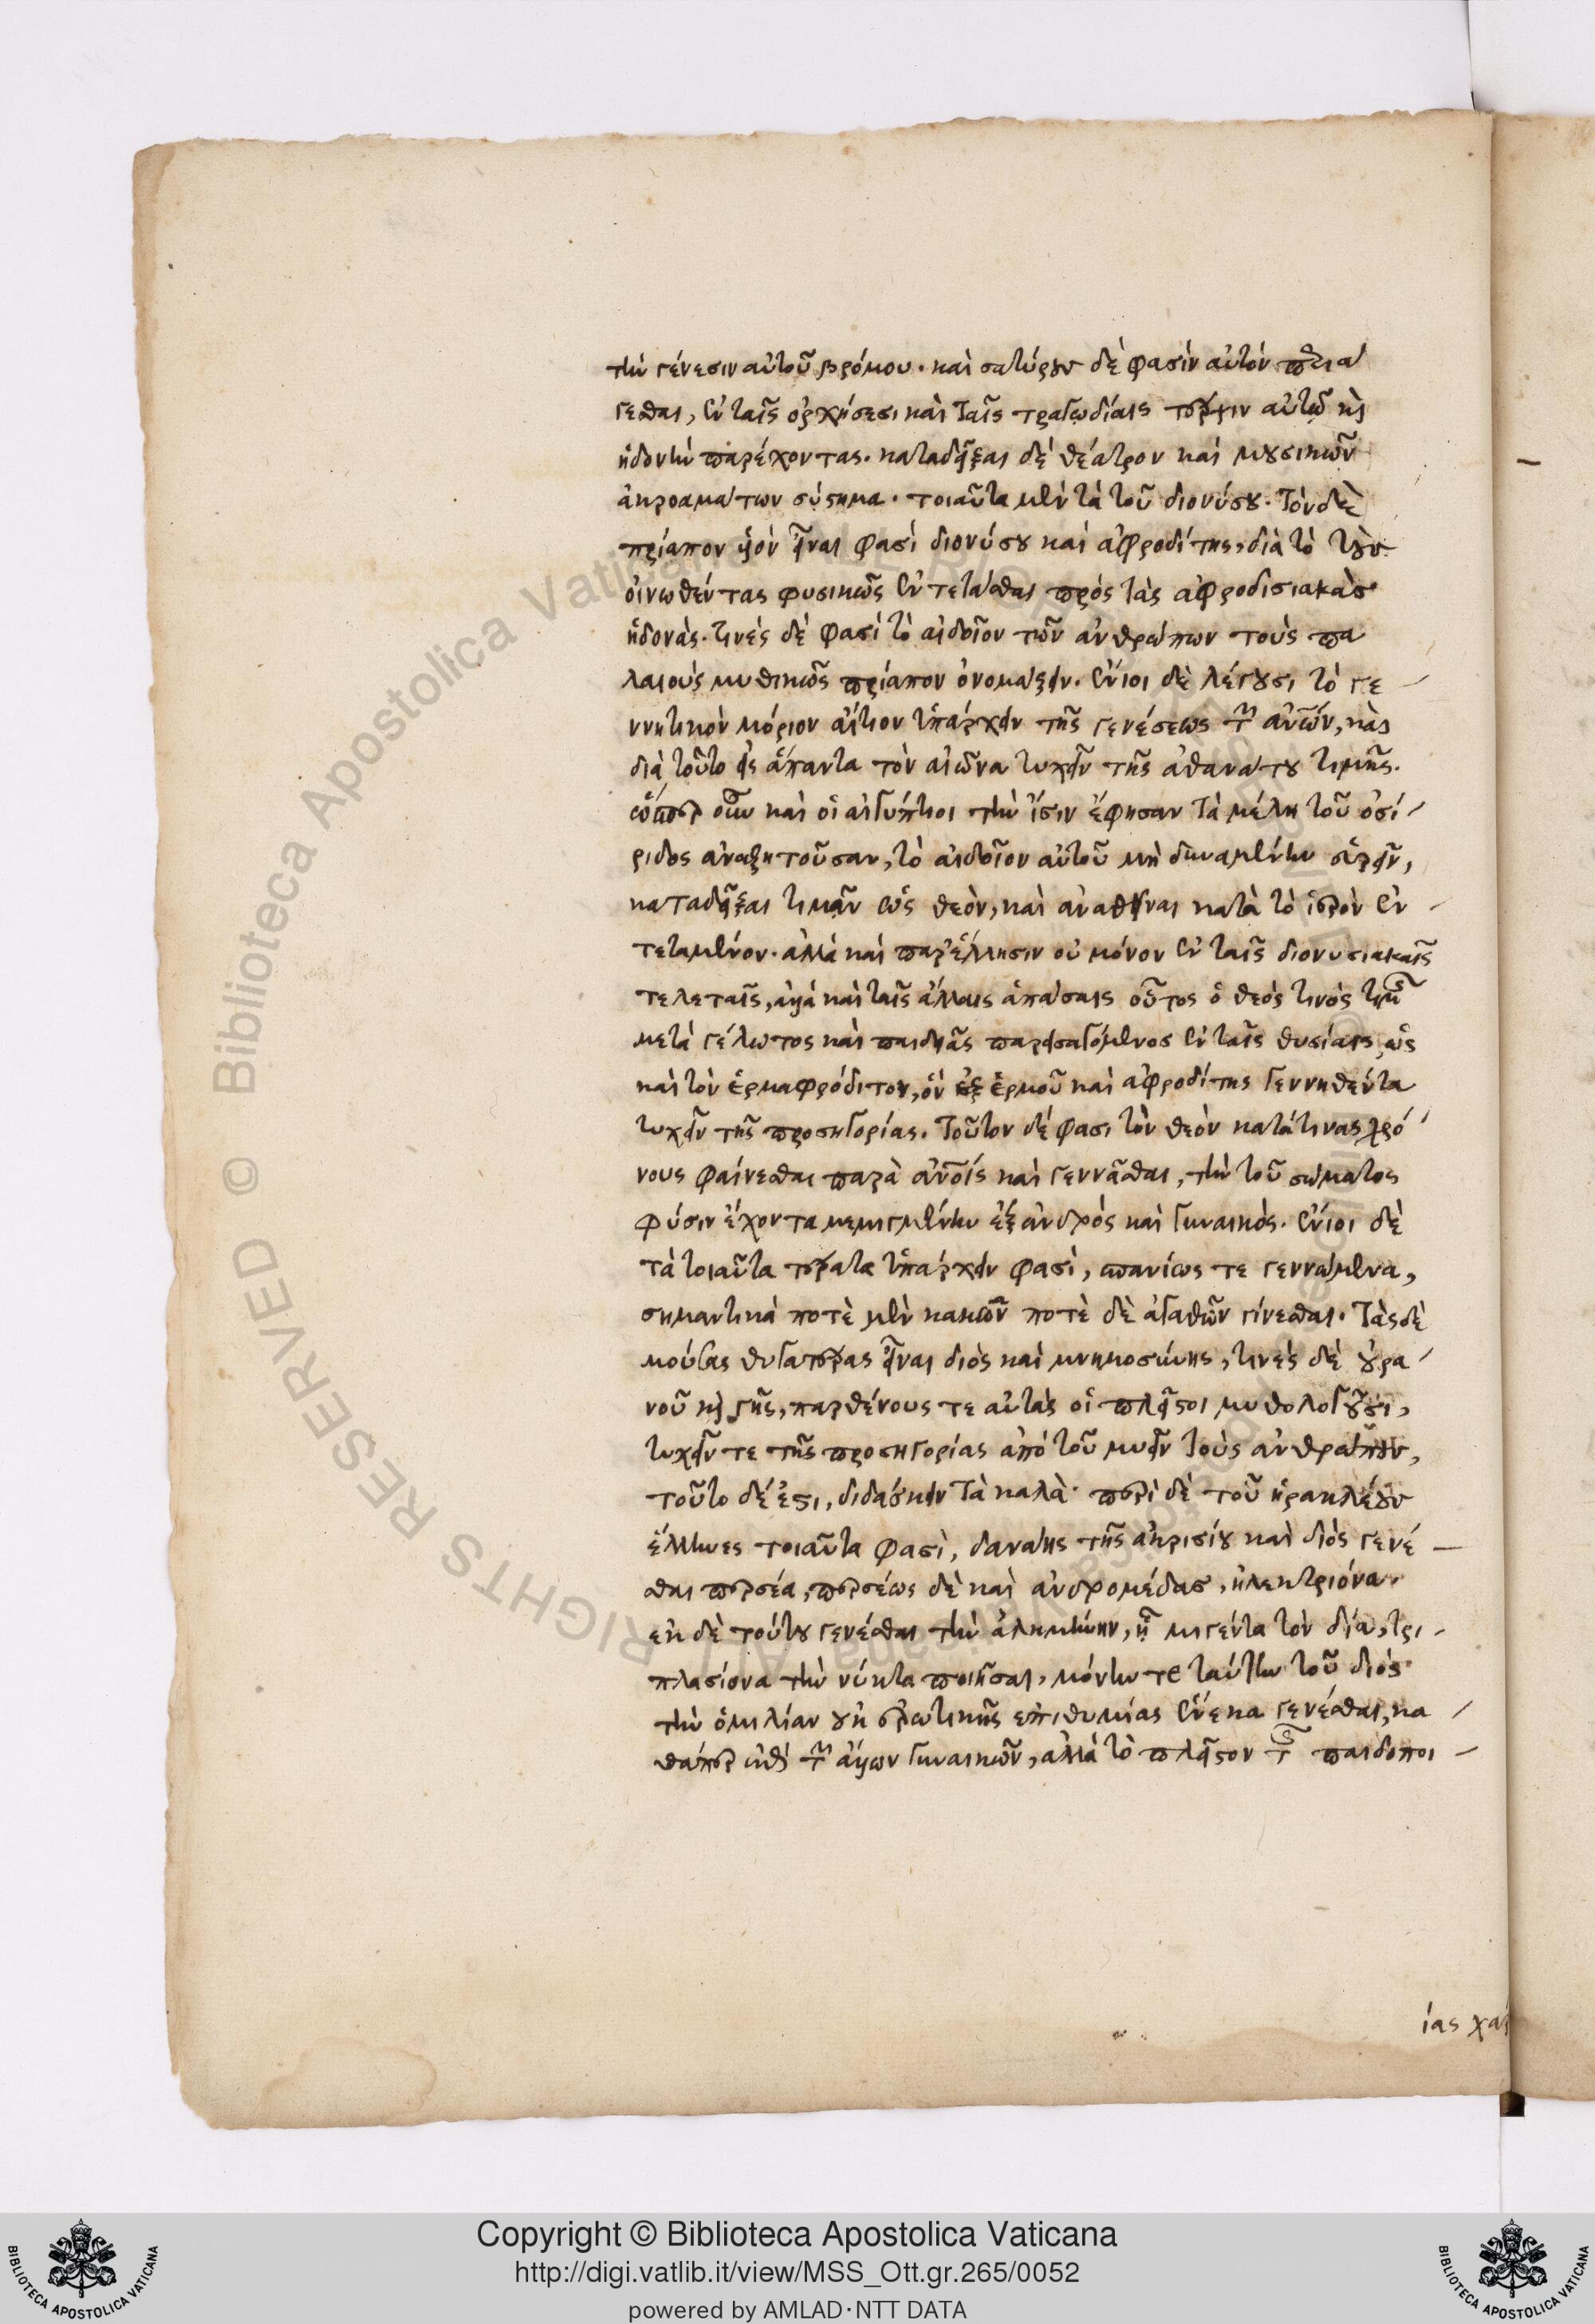 τὴν γένεσιν αὐτοῦ βρόμου. καὶ σατύρους δέ φασιν αὐτὸν περιά
γεσθαι, ἐν ταῖς ὀρχήσεσι καὶ ταῖς τραγωδίαις τέρψιν αὐτῷ καὶ
ἡδονὴν παρέχοντας. καταδεῖξαι δὲ θέατρον καὶ μουσικῶν
ἀκροαμάτων σύστημα. τοιαῦτα μὲν τὰ τοῦ διονύσου. τὸν δὲ
πρίαπον υἱὸν εἶναι φασὶ διονύσου καὶ ἀφροδίτης, διὰ τὸ τοὺς
οἰνωθέντας φυσικῶς ἐντετάσθαι πρὸς τὰς ἀφροδισιακὰς
ἡδονάς. τινὲς δέ φασι τὸ αἰδοῖον τῶν ἀνθρώπων τοὺς πα
λαιοὺς μυθικῶς πρίαπον ὀνομάζειν. ἔνιοι δὲ λέγουσι τὸ γε
ννητικὸν μόριον αἴτιον ὑπάρχειν τῆς γενέσεως τῶν ἀνων, καὶ
διὰ τοῦτο εἰς ἅπαντα τὸν αἰῶνα τυχεῖν τῆς ἀθανάτου τιμῆς.
ὥσπερ οὖν καὶ οἱ αἰγύπτιοι τὴν ἴσιν ἔφησαν τὰ μέλη τοῦ ὀσί
ριδος ἀναζητοῦσαν, τὸ αἰδοῖον αὐτοῦ μὴ δυναμένην εὑρεῖν,
καταδεῖξαι τιμᾶν ὡς θεὸν, καὶ ἀναθεῖναι κατὰ τὸ ἱερὸν ἐν
τεταμένον. ἀλλὰ καὶ παρ' ἕλλησιν οὐ μόνον ἐν ταῖς διονυσιακαῖς
τελεταῖς, ἀλλὰ καὶ ταῖς ἄλλαις ἁπάσαις οὗτος ὁ θεὸς τινὸς τιμῆς
μετὰ γέλωτος καὶ παιδειᾶς παρεισαγόμενος ἐν ταῖς θυσίαις, ὡς
καὶ τὸν ἑρμαφρόδιτον, ὃν ἐξ ἑρμοῦ καὶ ἀφροδίτης γεννηθέντα
τυχεῖν τῆς προσηγορίας. τοῦτον δέ φασι τὸν θεὸν κατά τινας χρό
νους φαίνεσθαι παρὰ ἀνοις καὶ γεννᾶσθαι, τὴν τοῦ σώματος
φύσιν ἔχοντα μεμιγμένην ἐξ ἀνδρὸς καὶ γυναικός. ἔνιοι δὲ
τὰ τοιαῦτα τέρατα ὑπάρχειν φασὶ, σπανίως τε γεννώμενα,
σημαντικά ποτὲ μὲν κακῶν ποτὲ δὲ ἀγαθῶν γίνεσθαι. τὰς δὲ
μούσας θυγατέρας εἶναι διὸς καὶ μνημοσύνης, τινὲς δὲ οὐρα
νοῦ καὶ γῆς, παρθένους τε αὐτὰς οἱ πλεῖστοι μυθολογοῦσι,
τυχεῖν τε τῆς προσηγορίας ἀπὸ τοῦ μυεῖν τοὺς ἀνθρώπους,
τοῦτο δέ ἐστι, διδάσκειν τὰ καλὰ. περὶ δὲ τοῦ ἡρακλέους
ἕλληνες τοιαῦτα φασὶ, δανάης τῆς ἀκρισίου καὶ διὸς γενέ
σθαι περσέα, περσέως δὲ καὶ ἀνδρομέδας, ἠλεκτριόνα.
ἐκ δὲ τούτου γενέσθαι τὴν ἀλκμήνην, ᾗ μιγέντα τὸν δία, τρι
πλασίονα τὴν νύκτα ποιῆσαι, μόνην τε ταύτην τοῦ διὸς
τὴν ὁμιλίαν οὐκ ἐρωτικῆς ἐπιθυμίας ἕνεκα γενέσθαι, κα
θάπερ ἐπὶ τῶν ἄλλων γυναικῶν, ἀλλὰ τὸ πλεῖστον τῆς παιδοποι
ίας χά